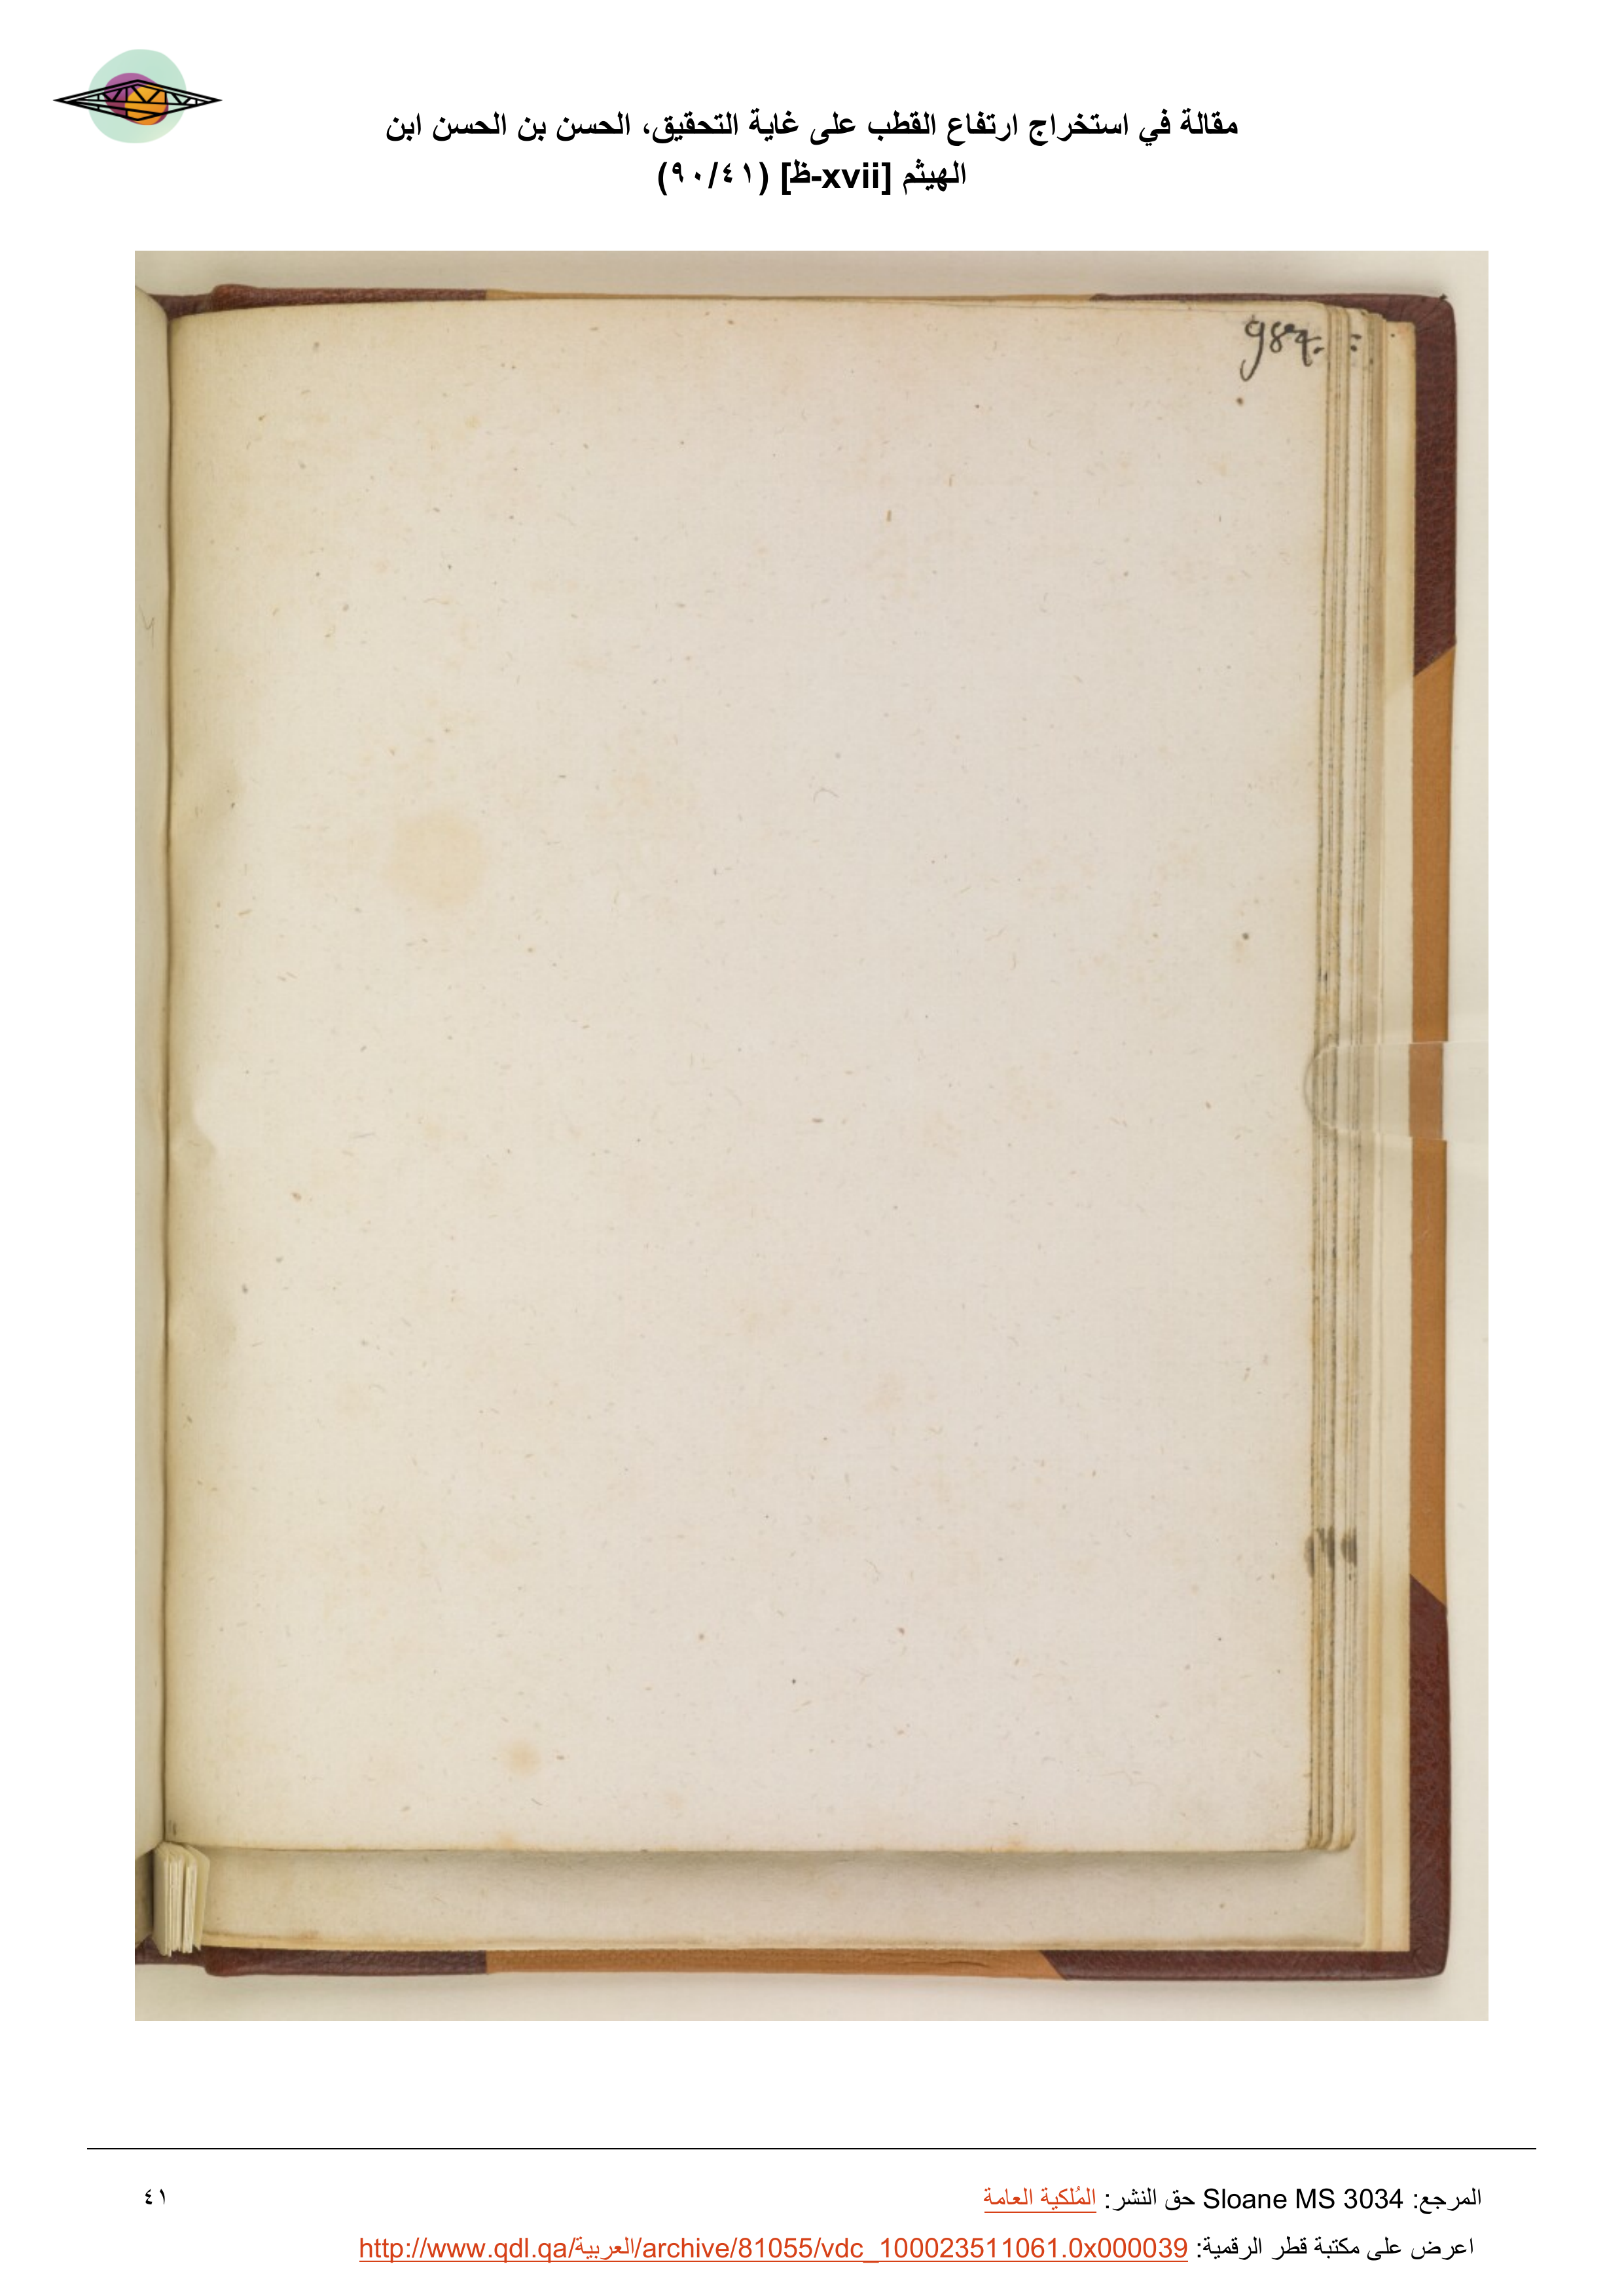 مقالة في استخراج ارتفاع القطب على غاية التحقيق، الحسن بن الحسن ابن
الهيثم [xvii-ظ] (٩٠/٤١)
984.
المرجع: Sloane MS 3034 حق النشر: المُلكية العامة
٤١
اعرض على مكتبة قطر الرقمية: http://www.qdl.qa/العربية/archive/81055/vdc_100023511061.0x000039